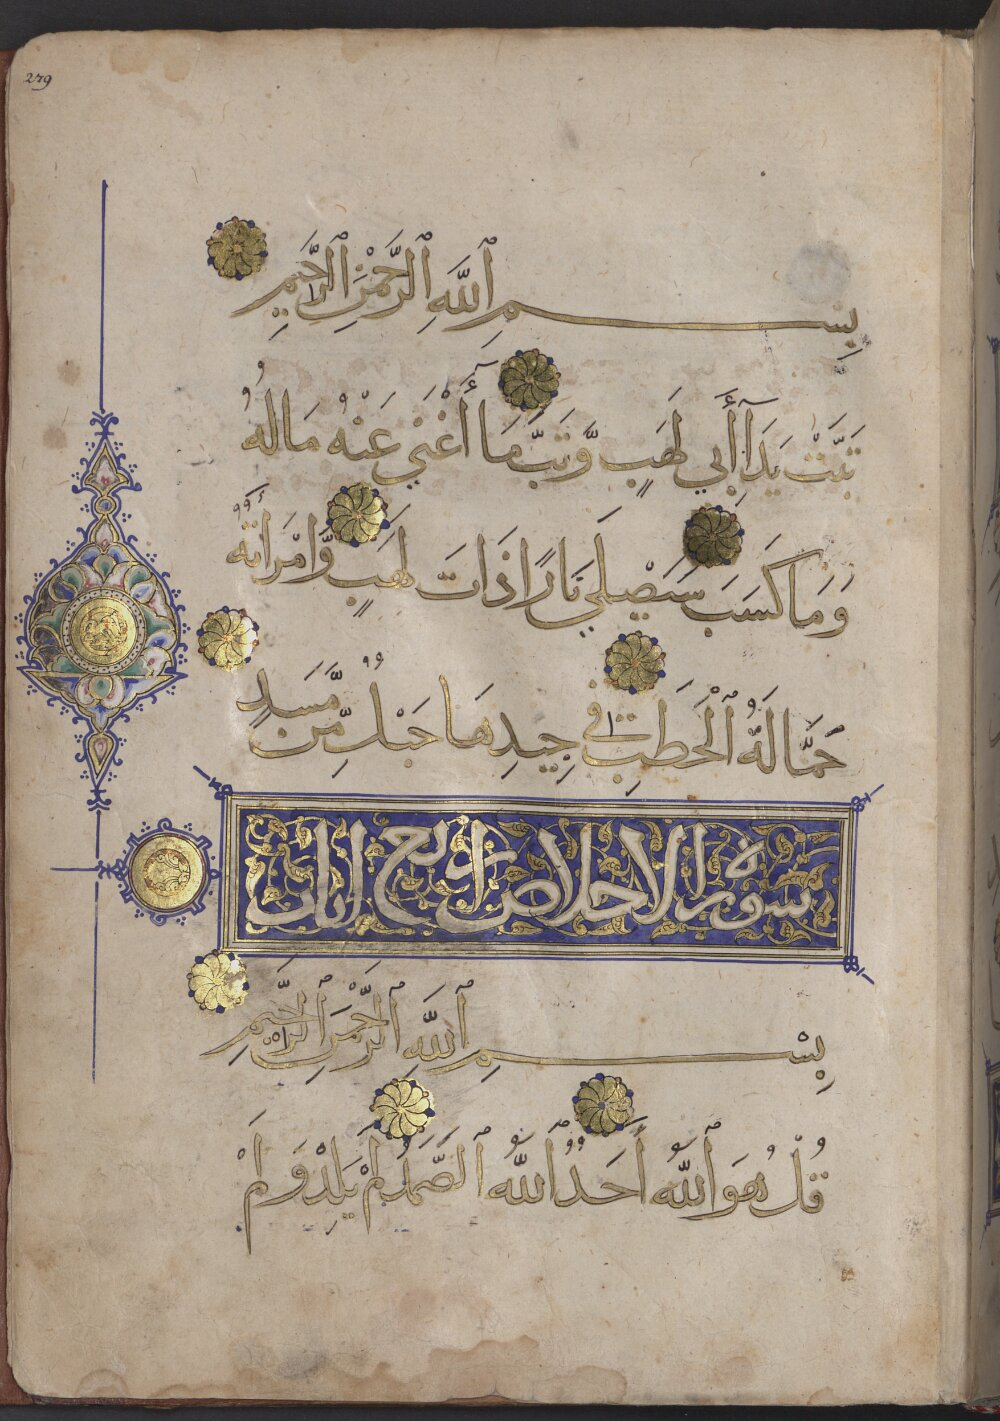 279
بِسْمِ ٱللَّهِ ٱلرَّحْمَٰنِ ٱلرَّحِيمِ
تَبَّتْ يَدَآ أَبِي لَهَبٍ وَّتَبَّ مَآ أَغْنَىٰ عَنْهُ مَالُهُ
وَمَا كَسَبَ سَيَصْلَىٰ نَارًا ذَاتَ لَهَبٍ وَّٱمْرَأَتُهُ
حَمَّالَةُ ٱلْحَطَبِ فِي جِيدِهَا حَبْلٌ مِّن مَّسَدٍ
سورة الاخلاص اربع ايات
بِسْمِ ٱللَّهِ ٱلرَّحْمَٰنِ ٱلرَّحِيمِ
قُلْ هُوَ ٱللَّهُ أَحَدٌ ٱللَّهُ ٱلصَّمَدُ لَمْ يَلِدْ وَلَمْ